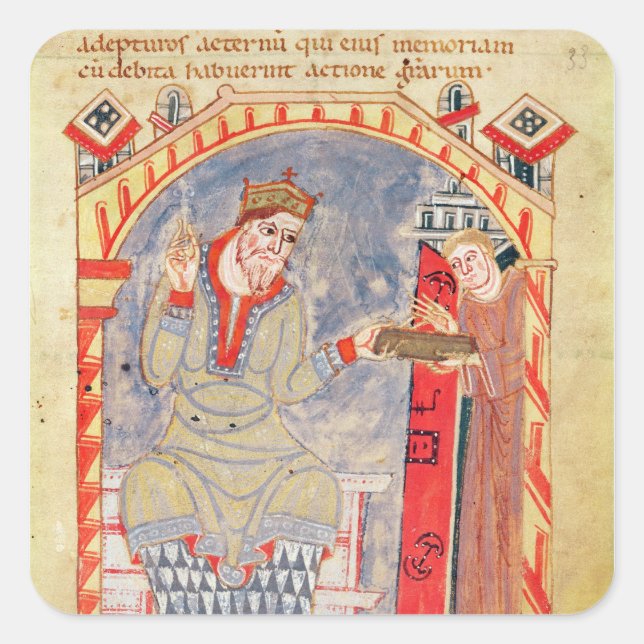 adepturos aeternū qui eius memoriam
cū debita habuerint actione grārum·
33